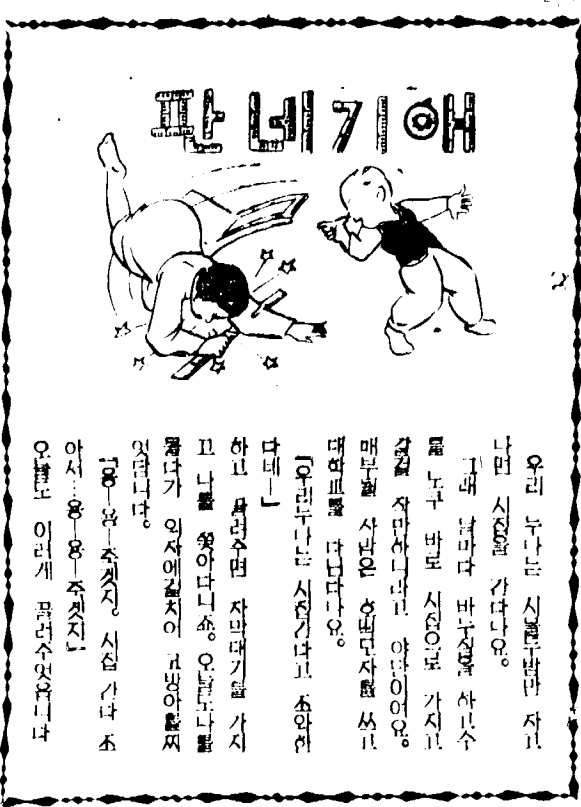 애기네판
우리 누나는 시물두밤만 자고
나면 시집을 간다나요。
그래 날마다 바누질을 하고 수
를 노쿠 바로 시집으로 가지고
갈걸 작만하니라고 야단이여요。
매부될 사람은 호떡모자를 쓰고
대학교를 다닌다나요。
「우리누나는 시집간다고 조와한
다네—」
하고 끌러주면 자막대기를 가지
고 나를 쫓아다니죠。오날도나를
쫓다가 의자에걸치여 코방아를찌
엿답니다。
「용—용—주겟지。시집 간다 조
아서…용—용—주겟지」
오날도 이러게 끌러주엇읍니다